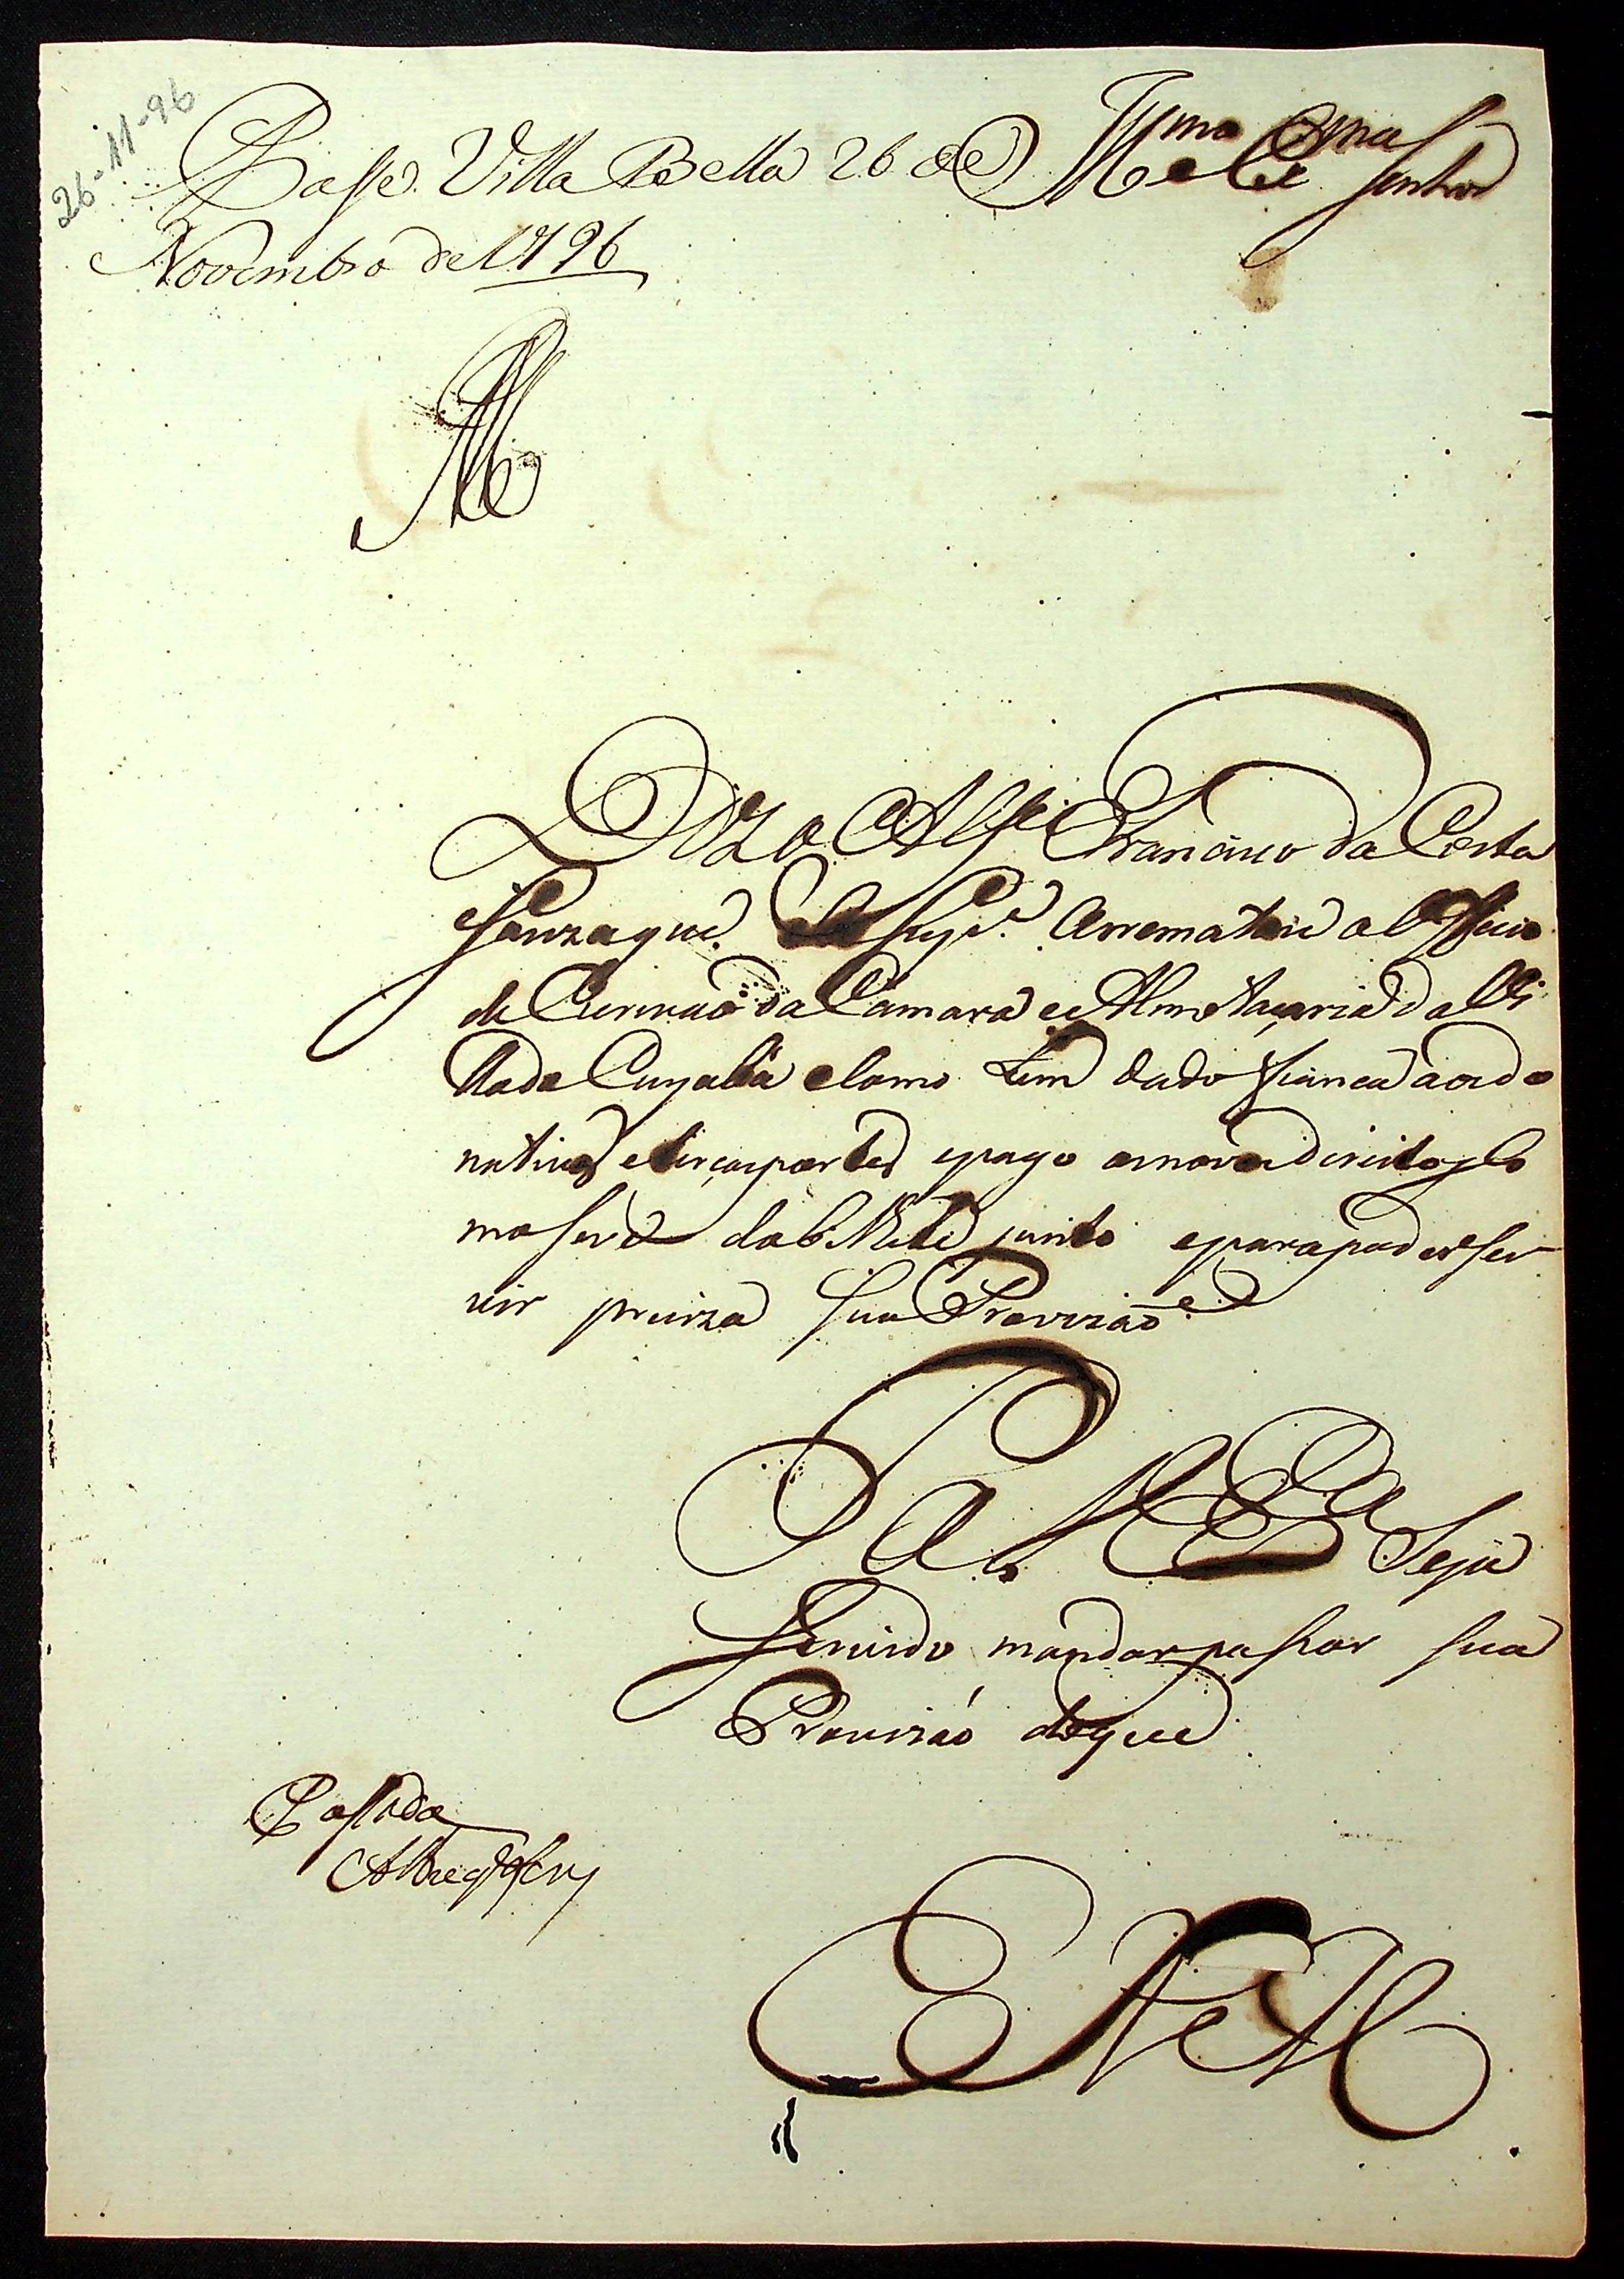 26-11-96
Passe. Villa Bella 26 de
Novembro de 1796
Illmo e Exmo Senhor
Diz o Alfe Francisco da Costa
que Arrematou o Officio
de Escrivaõ da Camara e Almotaçaria da Vi
lla do Cuyabá e como tem dado fiança aos do
nativos e terças partes e pago os novos direitos, co
mo se ve do bilhete junto e para poder ser
vir preciza sua Provizaõ
P a V Exa Seja
Servido mandar passar sua
Provizaõ do que
Passada
E R M